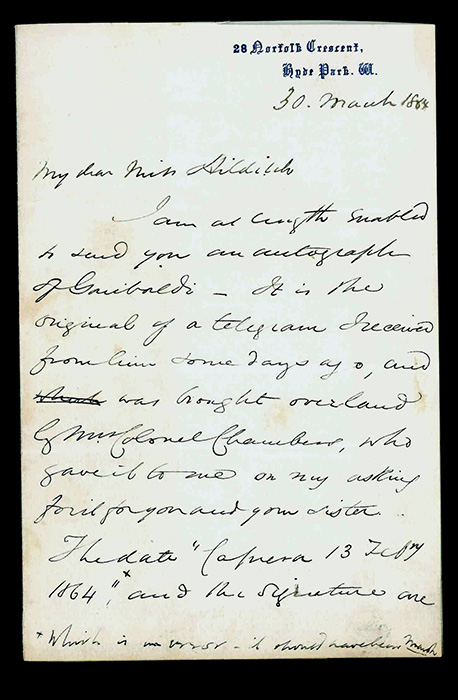 28 Norfolk Crescent,
Hyde Park. W.
30. March 1864
My dear Miss Hilditch
I am at length enabled
to send you an autograph
of Garibaldi – It is the
original of a telegram I received
from him some days ago, and
which was brought overland
by Mrs Colonel Chambers, who
gave it to me on my asking
for it for you and your sister.
The date "Caprera 13 Febry
1864,"* and the signature are
* Which is an error – it should have been March